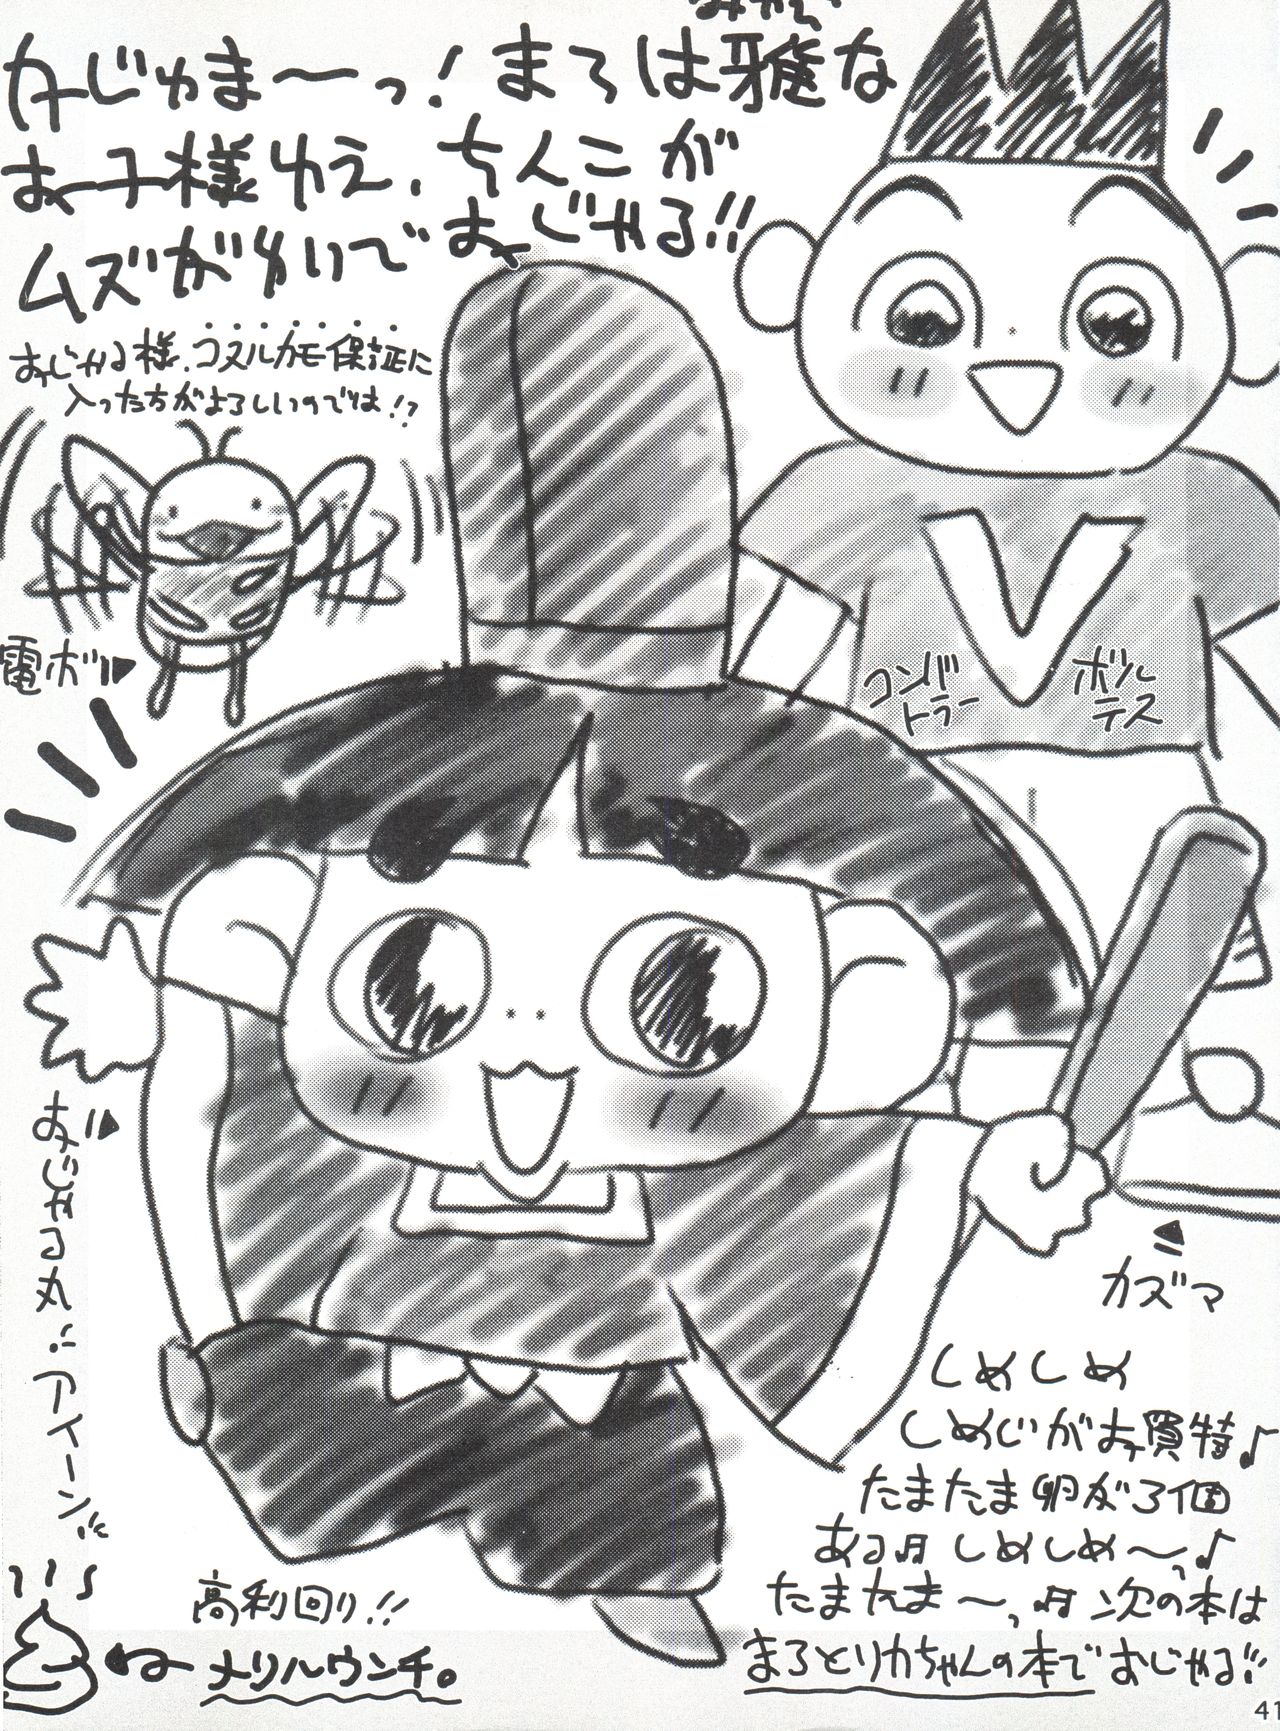 みやびで
カズマ〜っ!まろは雅な
お子様ゆえ、ちんこが
ムズがゆいでおじゃる!!
おじゃる様、コヌルカモ保証に
入った方がよろしいのでは!?
電ボ
コンバ
トラー
ボル
テス
おじゃる丸
アイーン
カズマ
しめしめ
しめじがお買特♪
たまたま卵が3個
ある♬しめしめ〜っ♪
たまたま〜っ♬次の本は
まろとリカちゃんの本でおじゃる!!
高利回り!!
メリルウンチ。
41